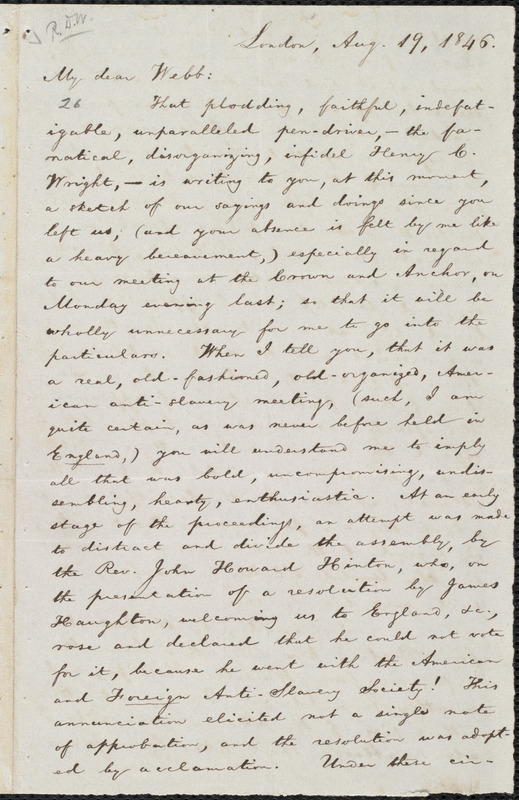 R. D. W.
London, Aug. 19, 1846.
My dear Webb:
26 That plodding, faithful, indefat-
igable, unparalleled pen-driver, — the fa-
natical, disorganizing, infidel Henry C.
Wright, — is writing to you, at this moment,
a sketch of our sayings and doings since you
left us; (and your absence is felt by me like
a heavy bereavement,) especially in regard
to our meeting at the Crown and Anchor, on
Monday evening last; so that it will be
wholly unnecessary for me to go into the
particulars. When I tell you, that it was
a real, old-fashioned, old-organized, Amer-
ican anti-slavery meeting, (such, I am
quite certain, as was never before held in
England,) you will understand me to imply
all that was bold, uncompromising, undis-
sembling, hearty, enthusiastic. At an early
stage of the proceedings, an attempt was made
to distract and divide the assembly, by
the Rev. John Howard Hinton, who, on
the presentation of a resolution by James
Haughton, welcoming us to England, &c.,
rose and declared that he could not vote
for it, because he went with the American
and Foreign Anti-Slavery Society! This
annunciation elicited not a single note
of approbation, and the resolution was adopt-
ed by acclamation. Under these cir-